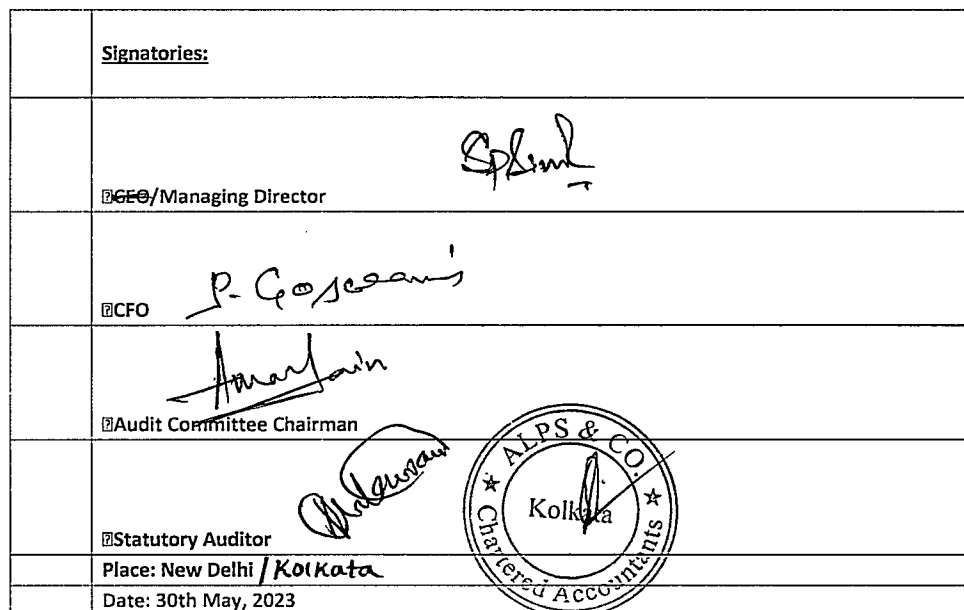 Signatories:
CEO/Managing Director
CFO P. Goswami
Audit Committee Chairman
Statutory Auditor
ALPS & CO.
Kolkata
Chartered Accountants
Place: New Delhi / Kolkata
Date: 30th May, 2023